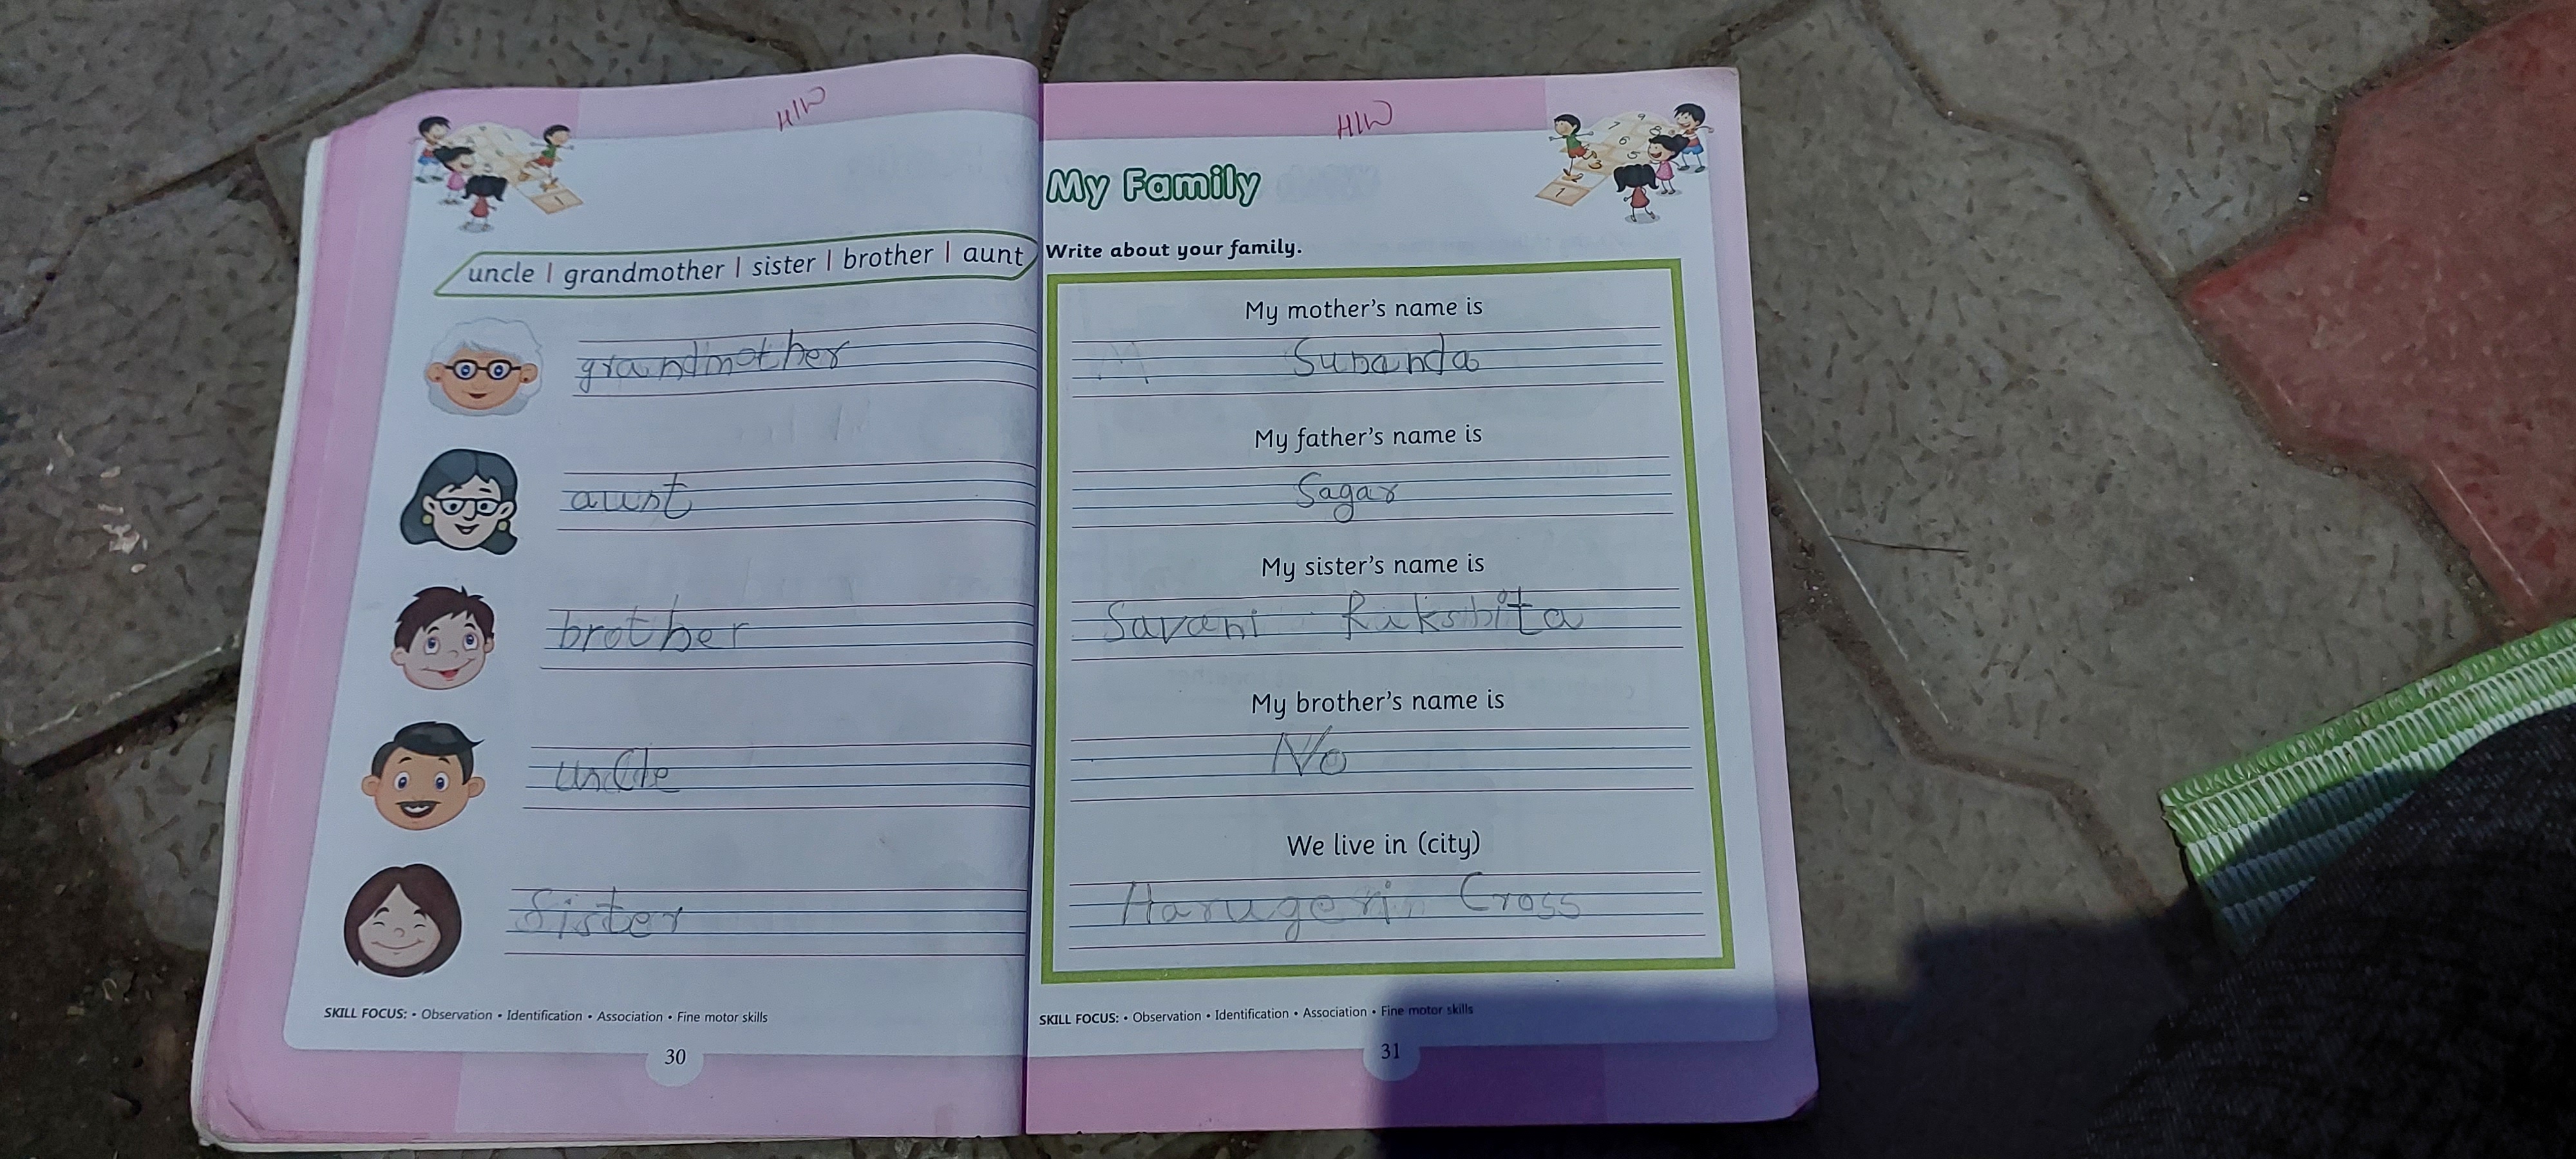 H/W
uncle | grandmother | sister | brother | aunt
grandmother
aunt
brother
uncle
Sister
SKILL FOCUS: • Observation • Identification • Association • Fine motor skills
30
H/W
My Family
Write about your family.
My mother's name is
Sunanda
My father's name is
Sagar
My sister's name is
Savani Rukshita
My brother's name is
No
We live in (city)
Harugeri Cross
SKILL FOCUS: • Observation • Identification • Association • Fine motor skills
31